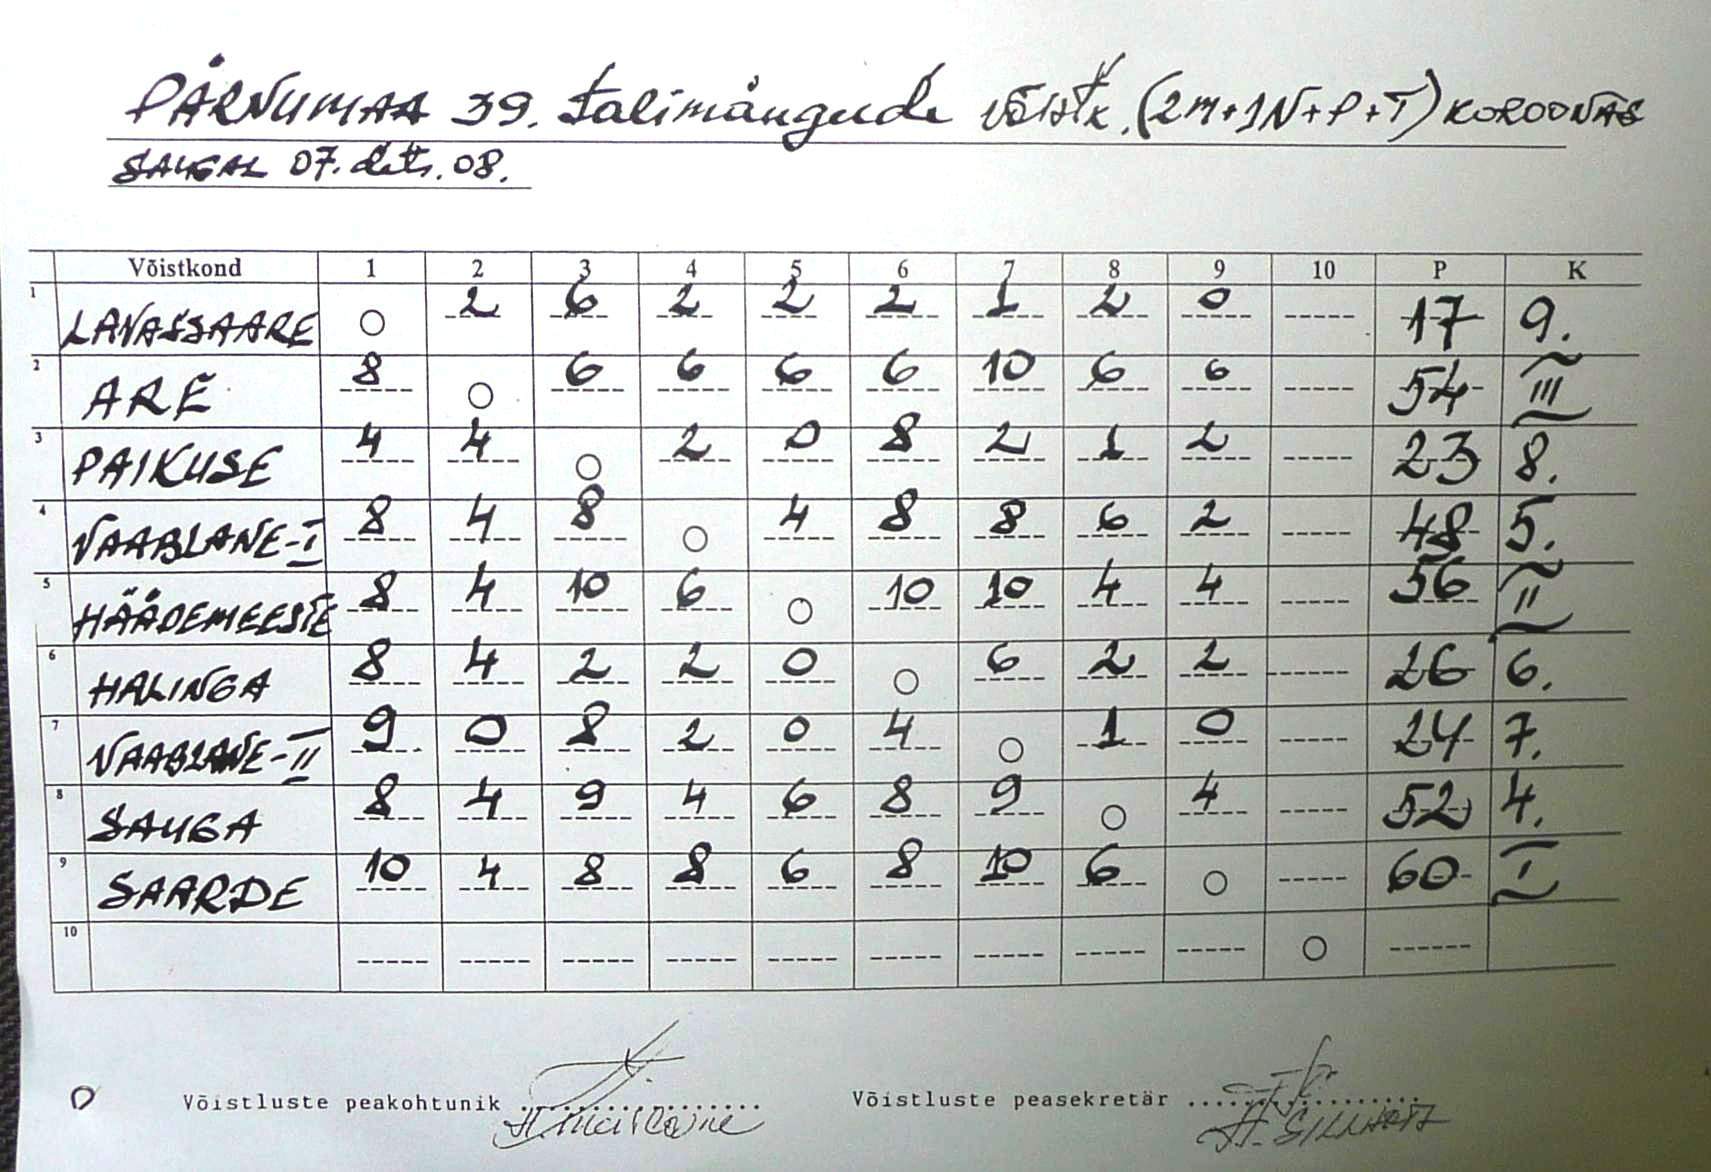 PÄRNUMAA 39. talimängude võistk. (2M+1N+P+T) KOROONAS
SAUGAL 07. dets. 08.
Võistkond 1 2 3 4 5 6 7 8 9 10 P K
1 LAVASSAARE O 2 6 2 2 2 1 2 0 17 9.
2 ARE 8 O 6 6 6 6 10 6 6 54 III
3 PAIKUSE 4 4 O 2 0 8 2 1 2 23 8.
4 VAABLANE-I 8 4 8 O 4 8 8 6 2 48 5.
5 HÄÄDEMEESTE 8 4 10 6 O 10 10 4 4 56 II
6 HALINGA 8 4 2 2 0 O 6 2 2 26 6.
7 VAABLANE-II 9 0 8 2 0 4 O 1 0 24 7.
8 SAUGA 8 4 9 4 6 8 9 O 4 52 4.
9 SAARDE 10 4 8 8 6 8 10 6 O 60 I
10 O
Võistluste peakohtunik
Võistluste peasekretär